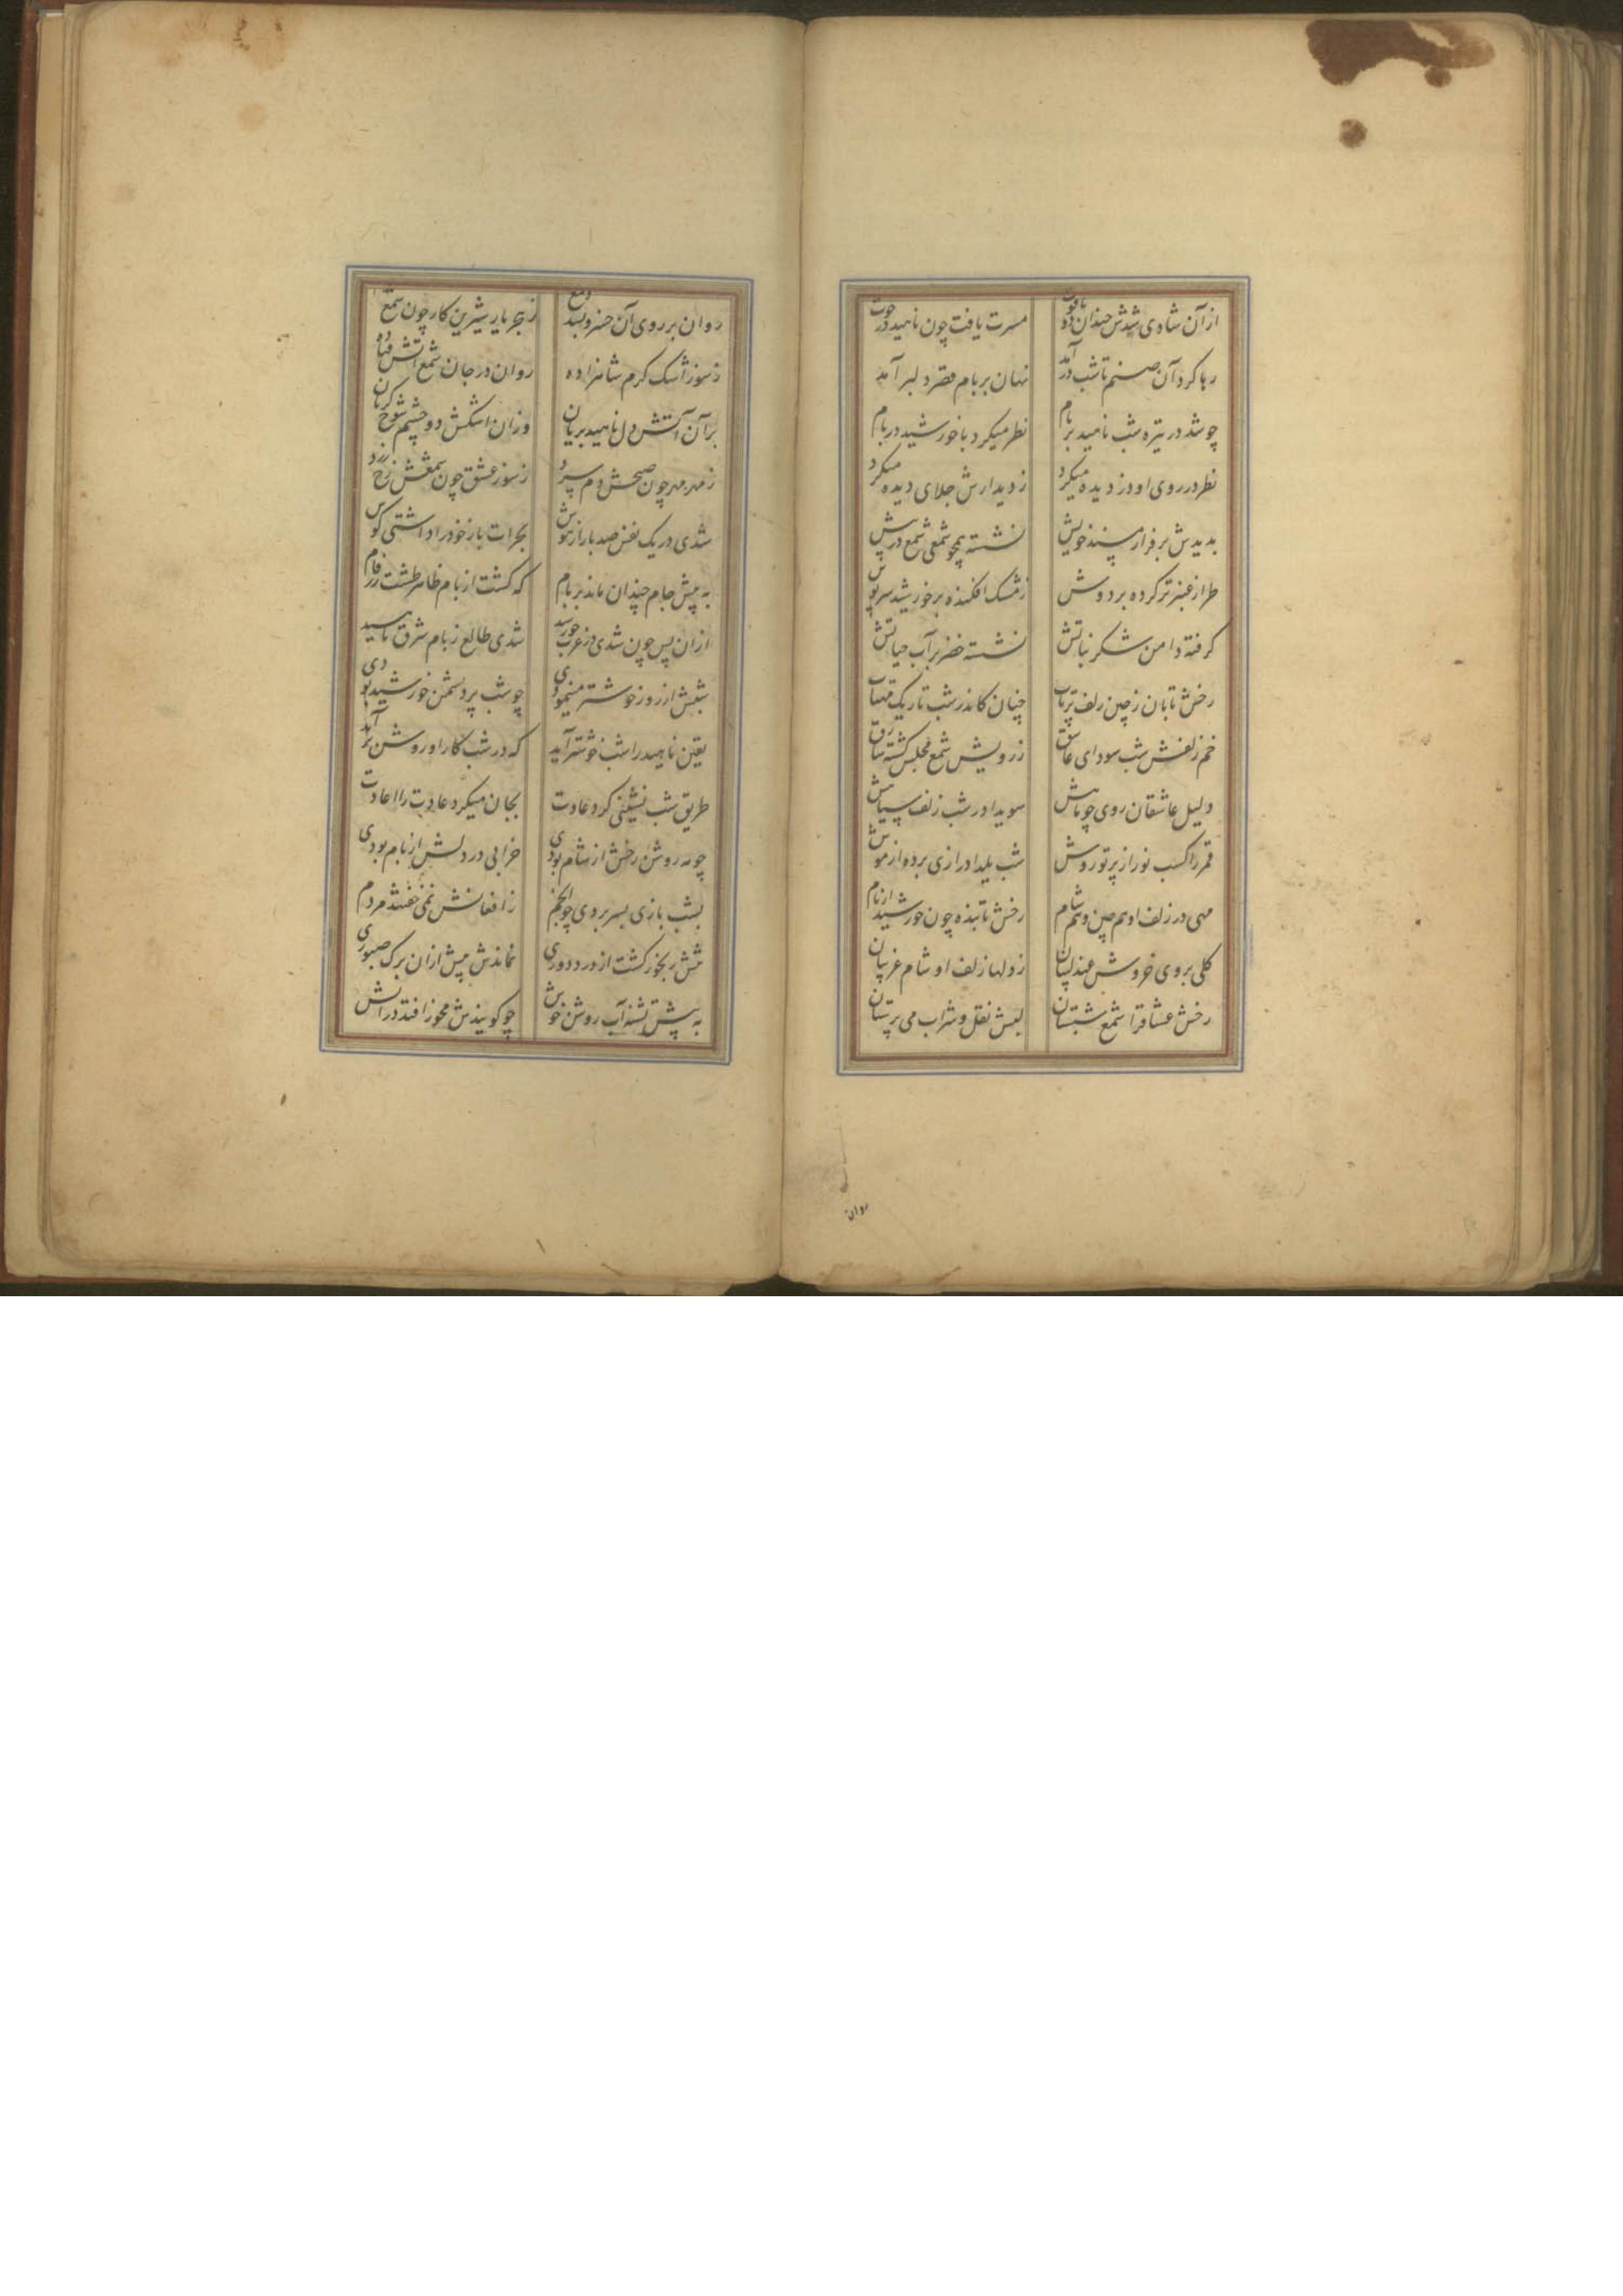 از آن شادی شدش خندان دو یاقوت مسرت یافت چون ناهید در حوت
رها کرد آن صنم تا شب درآمد نهان بر بام قصر دلبر آمد
چو شد در تیره شب ناهید بر بام نظر میکرد با خورشید در بام
نظر در روی او دزدیده میکرد ز دیدارش جلای دیده میکرد
بدیدش بر فراز مسند خویش نشسته همچو شمعی شمع در پیش
طراز عنبر تر کرده بر دوش ز مشک افکنده بر خورشید سرپوش
گرفته دامن شکر نباتش نشسته خضر بر آب حیاتش
رخش تابان ز چین زلف پرتاب چنان کاندر شب تاریک مهتاب
خم زلفش شب سودای عاشق ز رویش شمع مجلس گشته
دلیل عاشقان روی چو ماهش سویدا در شب زلف سیاهش
قمر را کسب نور از پرتو روش شب یلدا درازی برده از موش
مهی در زلف او هم چین و هم شام رخش تابنده چون خورشید از بام
گلی بر وی خروش عندلیبان ز دلها زلف او شام غریبان
رخش عشاقرا شمع شبستان لبش نقل و شراب می پرستان
روان
روان بر روی آن خسرو دمع ز هجر یار شیرین کار چون شمع
ز سوز اشک گرم شاهزاده روان در جان شمع آتش فتاده
بر آن آتش دل ناهید بریان وزان اشکش دو چشم شوخ گریان
ز مهر مهر چون صبحش دم سرد ز سوز عشق چون شمعش رخ زرد
شدی در یک نفس صد بار از هوش بجرات باز خود را داشتی گوش
به پیش جام چندان ماند بر بام که گشت از بام ظاهر طشت زرفام
ازان پس چون شدی در غرب خورشید شدی طالع ز بام شرق ناهید
شبش از روز خوشتر مینمودی چو شب بر دشمن خورشید بودی
یقین ناهید را شب خوشتر آید که در شب کار او روشن برآید
طریق شب نشینی کرد عادت بجان میکرد عادت را اعادت
چو مه روشن رخش از شام بودی خرابی در دلش از بام بودی
بشب بازی بسر بردی چو انجم ز افغانش نمی خفتند مردم
تنش رنجور گشت از درد دوری نماندش بیش ازان برگ صبوری
به پیش تشنه آب روشن خوش چو گویندش مخور افتد در آتش